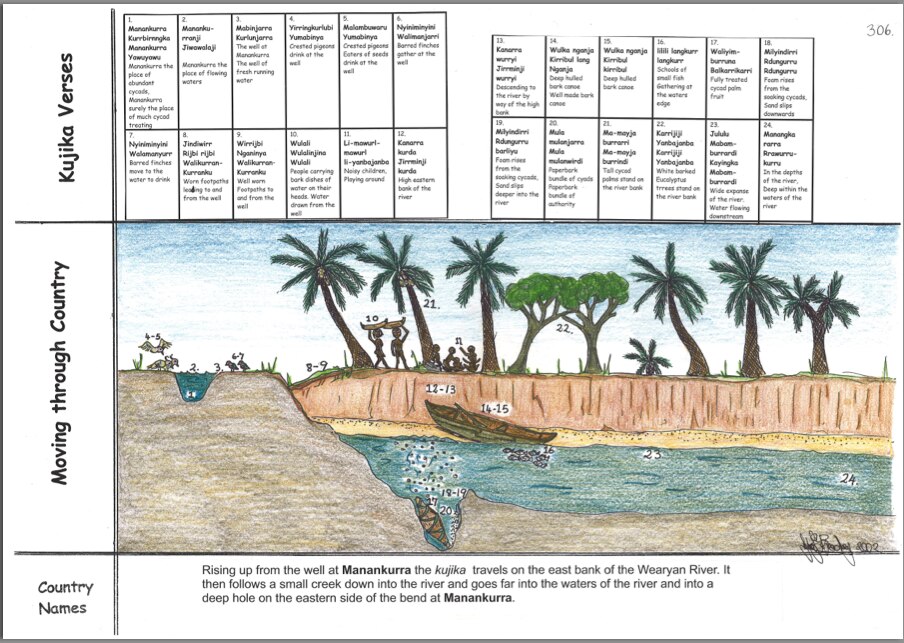 306.
Kujika Verses
1.
Manankurra
Kurrbirnngka
Manankurra
Yawuyawu
Manankurra the
place of
abundant
cycads,
Manankurra
surely the place
of much cycad
treating
2.
Mananku-
rranji
Jiwawalaji
Manankurra the
place of flowing
waters
3.
Mabinjarra
Kurlunjarra
The well at
Manankurra
The well of
fresh running
water
4.
Yirringkurlubi
Yumabinya
Crested pigeons
drink at the
well
5.
Malambuwaru
Yumabinya
Crested pigeons
Eaters of seeds
drink at the
well
6.
Nyiniminyini
Walimanjarri
Barred finches
gather at the
well
7.
Nyiniminyini
Walamanyurr
Barred finches
move to the
water to drink
8.
Jindiwirr
Rijbi rijbi
Walikurran-
Kurranku
Worn footpaths
leading to and
from the well
9.
Wirrijbi
Nganinya
Walikurran-
Kurranku
Well worn
Footpaths to
and from the
well
10.
Wulali
Wulalinjina
Wulali
People carrying
bark dishes of
water on their
heads. Water
drawn from the
well
11.
Li-mawurl-
mawurl
li-yanbajanba
Noisy children,
Playing around
12.
Kanarra
kurda
Jirrminji
kurda
High eastern
bank of the
river
13.
Kanarra
wurryi
Jirrminji
wurryi
Descending to
the river by
way of the high
bank
14.
Wulka nganja
Kirribul lang
Nganja
Deep hulled
bark canoe
Well made bark
canoe
15.
Wulka nganja
Kirribul
kirribul
Deep hulled
bark canoe
16.
lilili langkurr
langkurr
Schools of
small fish
Gathering at
the waters
edge
17.
Waliyim-
burruna
Balkarrikarri
Fully treated
cycad palm
fruit
18.
Milyindirri
Rdungurru
Rdungurru
Foam rises
from the
soaking cycads,
Sand slips
downwards
19.
Milyindirri
Rdungurru
barliyu
Foam rises
from the
soaking cycads,
Sand slips
deeper into the
river
20.
Mula
mulanjarra
Mula
mulanwirdi
Paperbark
bundle of cycads
Paperbark
bundle of
authority
21.
Ma-mayja
burrarri
Ma-mayja
burrindi
Tall cycad
palms stand on
the river bank
22.
Karrijiji
Yanbajanba
Karrijiji
Yanbajanba
White barked
Eucalyptus
trrees stand on
the river bank
23.
Jululu
Mabam-
burrardi
Kayingka
Mabam-
burrardi
Wide expanse
of the river,
Water flowing
downstream
24.
Manangka
rarra
Rrawurru-
kurru
In the depths
of the river,
Deep within the
waters of the
river
Moving through Country
4-5
2.
3.
6-7
1.
8-9
10
11
21.
22.
12-13
14-15
16
23
24.
18-19
17
20
2002
Country
Names
Rising up from the well at Manankurra the kujika travels on the east bank of the Wearyan River. It
then follows a small creek down into the river and goes far into the waters of the river and into a
deep hole on the eastern side of the bend at Manankurra.